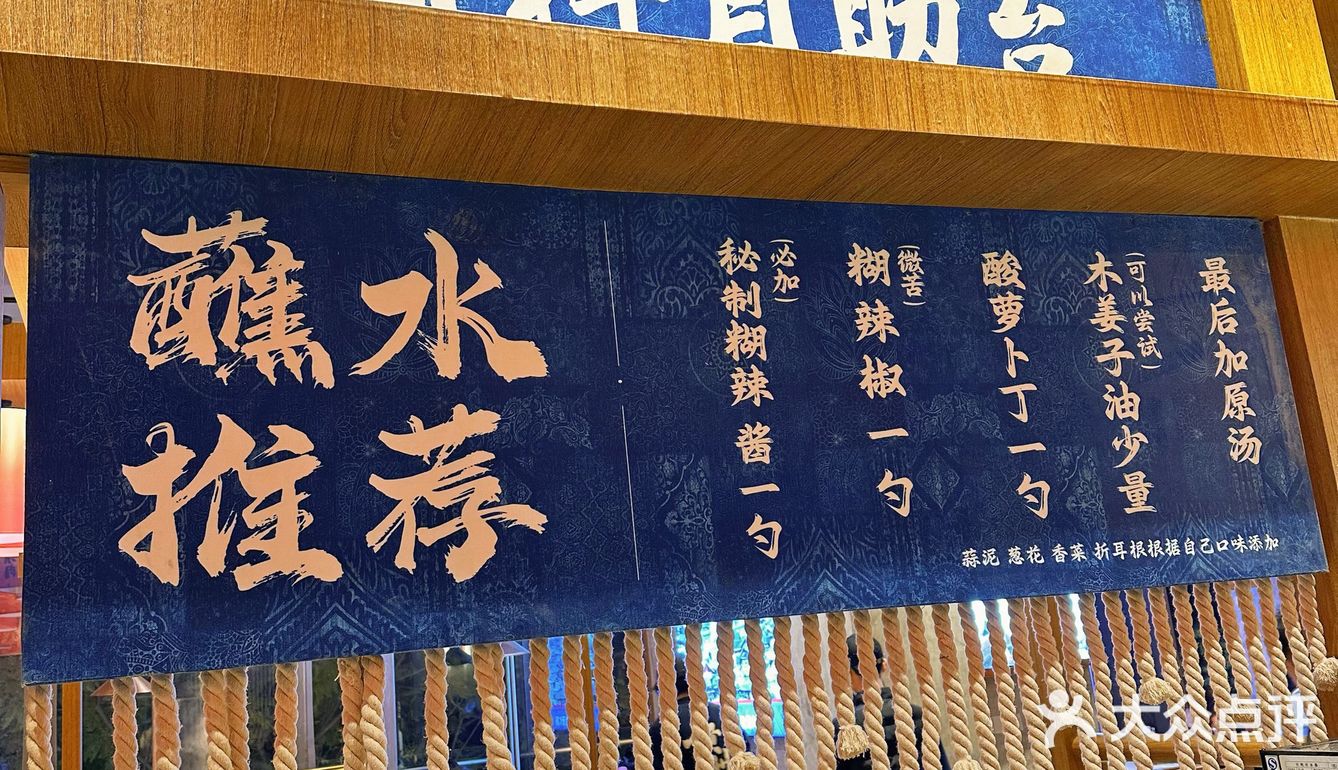 料自助台
蘸水
推荐
秘制糊辣酱一勺
(必加)
糊辣椒一勺
(微苦)
酸萝卜丁一勺
木姜子油少量
(可以尝试)
最后加原汤
蒜泥 葱花 香菜 折耳根根据自己口味添加
大众点评